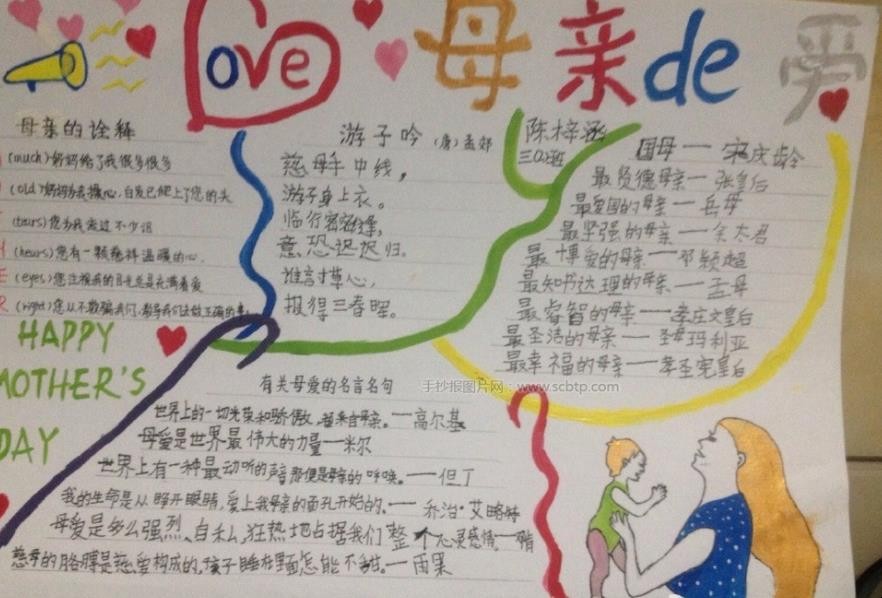 Love 母亲de 爱
母亲的诠释
(much)妈妈给了我很多很多
(old)妈妈为我操心,白发已爬上了您的头
(tears)您为我流过不少泪
(hears)您有一颗慈祥温暖的心.
(eyes)您注视我的目光总是充满着爱
(right)您从不欺骗我们,教导我们去做正确的事
HAPPY
MOTHER'S
DAY
游子吟 (唐)孟郊
慈母手中线,
游子身上衣。
临行密密缝,
意恐迟迟归。
谁言寸草心,
报得三春晖。
陈梓涵
国母一宋庆龄
最贤德母亲一张皇后
最爱国的母亲一岳母
最坚强的母亲一佘太君
最博爱的母亲一邓颖超
最知书达理的母亲一孟母
最睿智的母亲一孝庄文皇后
最圣洁的母亲一圣母玛利亚
最幸福的母亲一孝圣宪皇后
有关母爱的名言名句
世界上的一切光荣和骄傲,都来自母亲。一高尔基
母爱是世界最伟大的力量一米尔
世界上有一种最动听的声音那便是母亲的呼唤。一但丁
我的生命是从睁开眼睛,爱上我母亲的面孔开始的、一乔治·艾略特
母爱是多么强烈、自私,狂热地占据我们整个心灵感情一
慈母的胳膊是慈爱构成的,孩子睡在里面怎能不甜。一雨果
手抄报图片网:www.scbtp.com